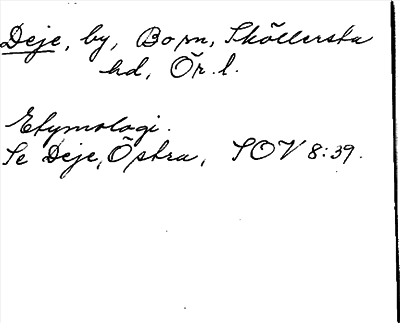 Deje, by, Bo sn, Sköllersta
hd, Ör. l.
Etymologi.
Se Deje, Östra, SOV 8:39.